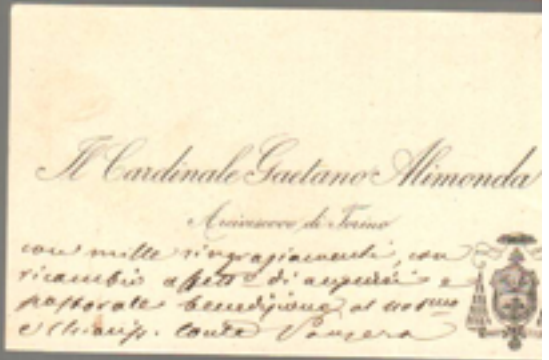 Il Cardinale Gaetano Alimonda
Arcivescovo di Torino
con mille ringraziamenti, con
ricambio affett.º di augurii e
pastorale benedizione al
e Chiariss. Conte